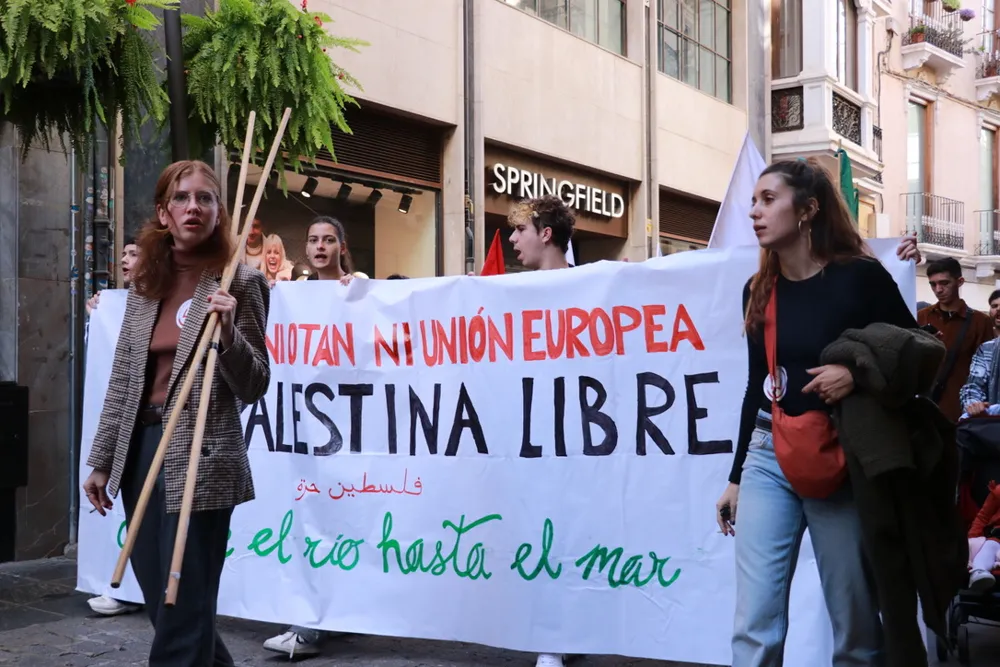 SPRINGFIELD
NI OTAN NI UNIÓN EUROPEA
PALESTINA LIBRE
فلسطين حرة
el río hasta el mar